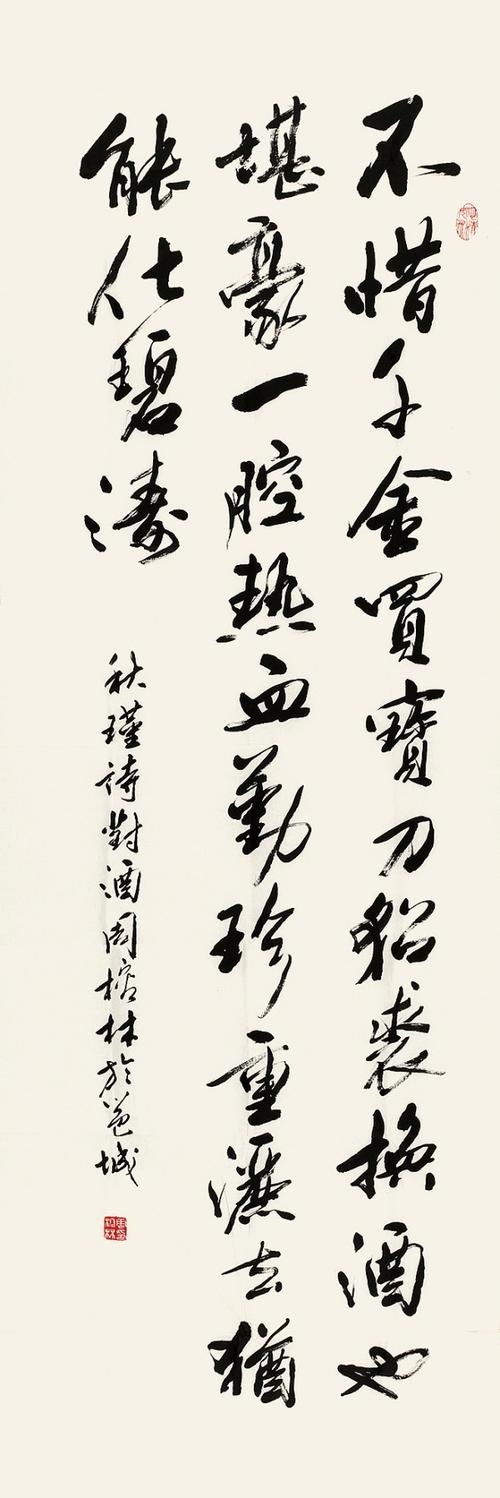 不惜千金買寶刀貂裘換酒也
堪豪一腔熱血勤珍重灑去猶
能化碧濤
秋瑾詩對酒周榕林於邕城